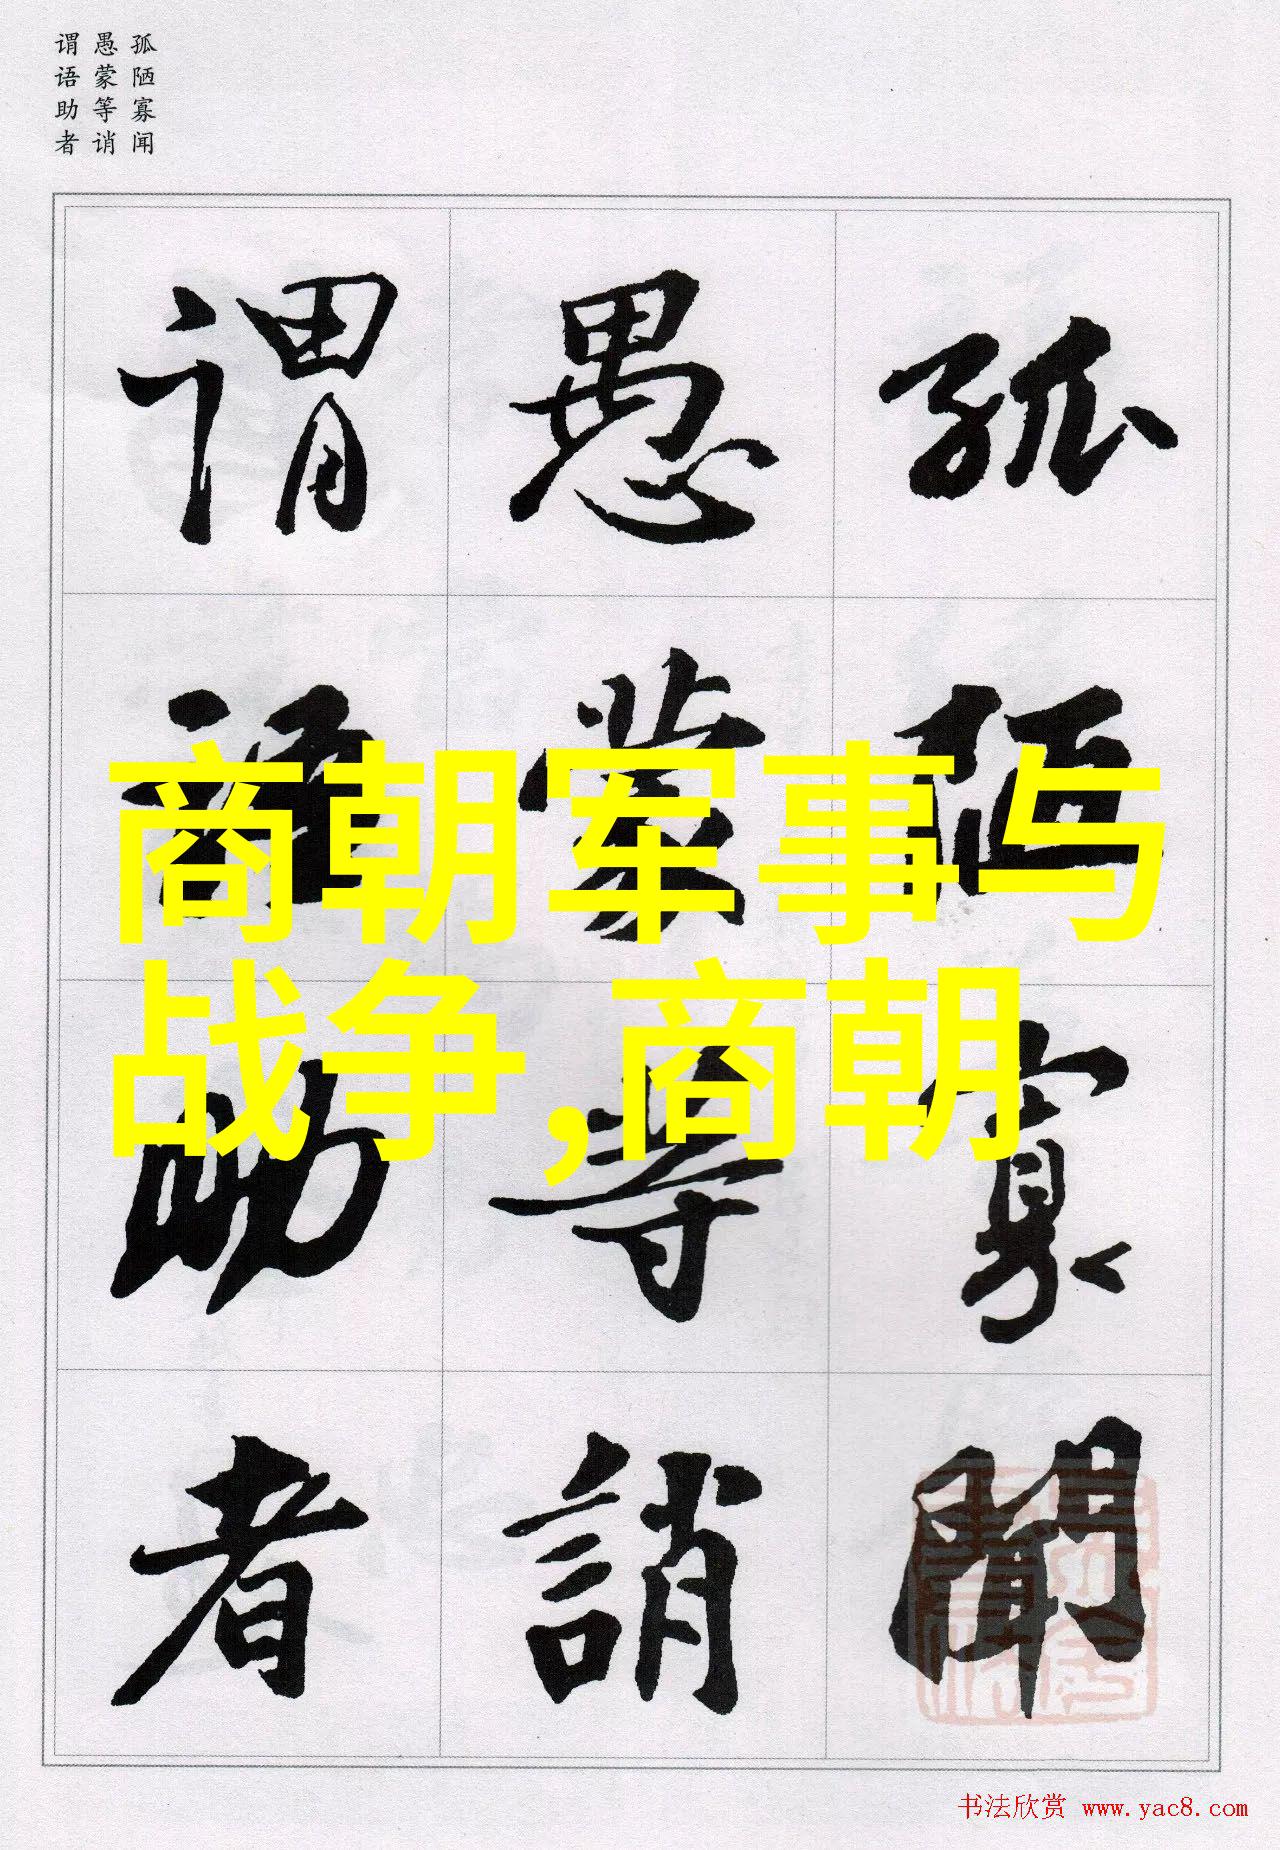 孤陋寡闻
愚蒙等诮
谓语助者
孤陋寡闻
愚蒙等誚
谓语助者
商朝军事与
战争,商朝
书法欣赏 www.yac8.com